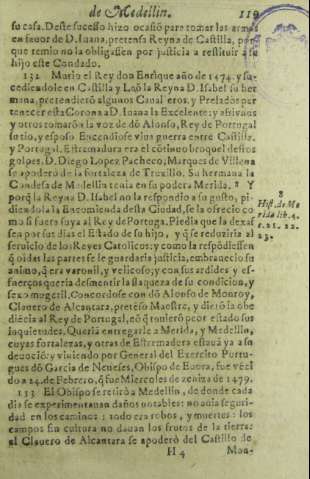 de Medellin. 119
su casa. Deste sucesso hizo ocasiõ para tomar las armas
en fauor de D. Iuana, pretensa Reyna de Castilla, por
que temio no la obligassen por justicia a restituir a su
hijo este Condado.
132 Murio el Rey don Enrique año de 1474. y su-
cediendole en Castilla y Leõ la Reyna D. Isabel su her
mana, pretendierõ algunos Caualleros, y Prelados per
tenecer esta Corona a D. Iuana la Excelente; y assi vnos
y otros tomarõ la voz de dõ Alonso, Rey de Portugal
su tio, y esposo. Encendiose vna guerra entre Castilla,
y Portugal. Estremadura era el cõtinuo broquel destos
golpes. D. Diego Lopez Pacheco, Marques de Villena
se apoderò de la fortaleza de Truxillo. Su hermana la
Condesa de Medellin tenia en su podera Merida. 8 Y
porq̃ la Reyna D. Isabel no la respondio a su gusto, pi-
diendola la Encomienda desta Ciudad, se la ofrecio co
mo si fuera suya al Rey de Portugal. Pedia que la dexas
sen por sus dias el Estado de su hijo, y q̃ se reduziria al
seruicio de los Reyes Catolicos; y como la respõdiessen
q̃ oidas las partes se le guardaria justicia, embrauecio su
animo, q̃ era varonil, y velicoso, y con sus ardides y es-
fuerços queria desmentir la flaqueza de su condicion, y
sexo mugeril. Concordose con dõ Alonso de Monroy,
Clauero de Alcantara, pretenso Maestre, y dierõ la obe
diẽcia al Rey de Portugal, cõ q̃ tomerõ peor estado sus
inquietudes. Queria entregarle a Merida, y Medellin,
cuyas fortalezas, y otras de Estremadura estauã ya a su
deuociõ: y viniendo por General del Exercito Portu-
gues dõ Garcia de Meneses, Obispo de Euora, fue vẽci
do a 24. de Febrero, q̃ fue Miercoles de zeniza de 1479.
133 El Obispo se retirò a Medellin, de donde cada
dia se experimentauan daños notables: no auia seguri-
dad en los caminos: todo era robos, y muertes: los
campos sin cultura no dauan los frutos de la tierra:
al Clauero de Alcantara se apoderò del Castillo de
H 4 Mon-
8
Hist. de Me
rida lib. 4.
c. 21. 22.
23.